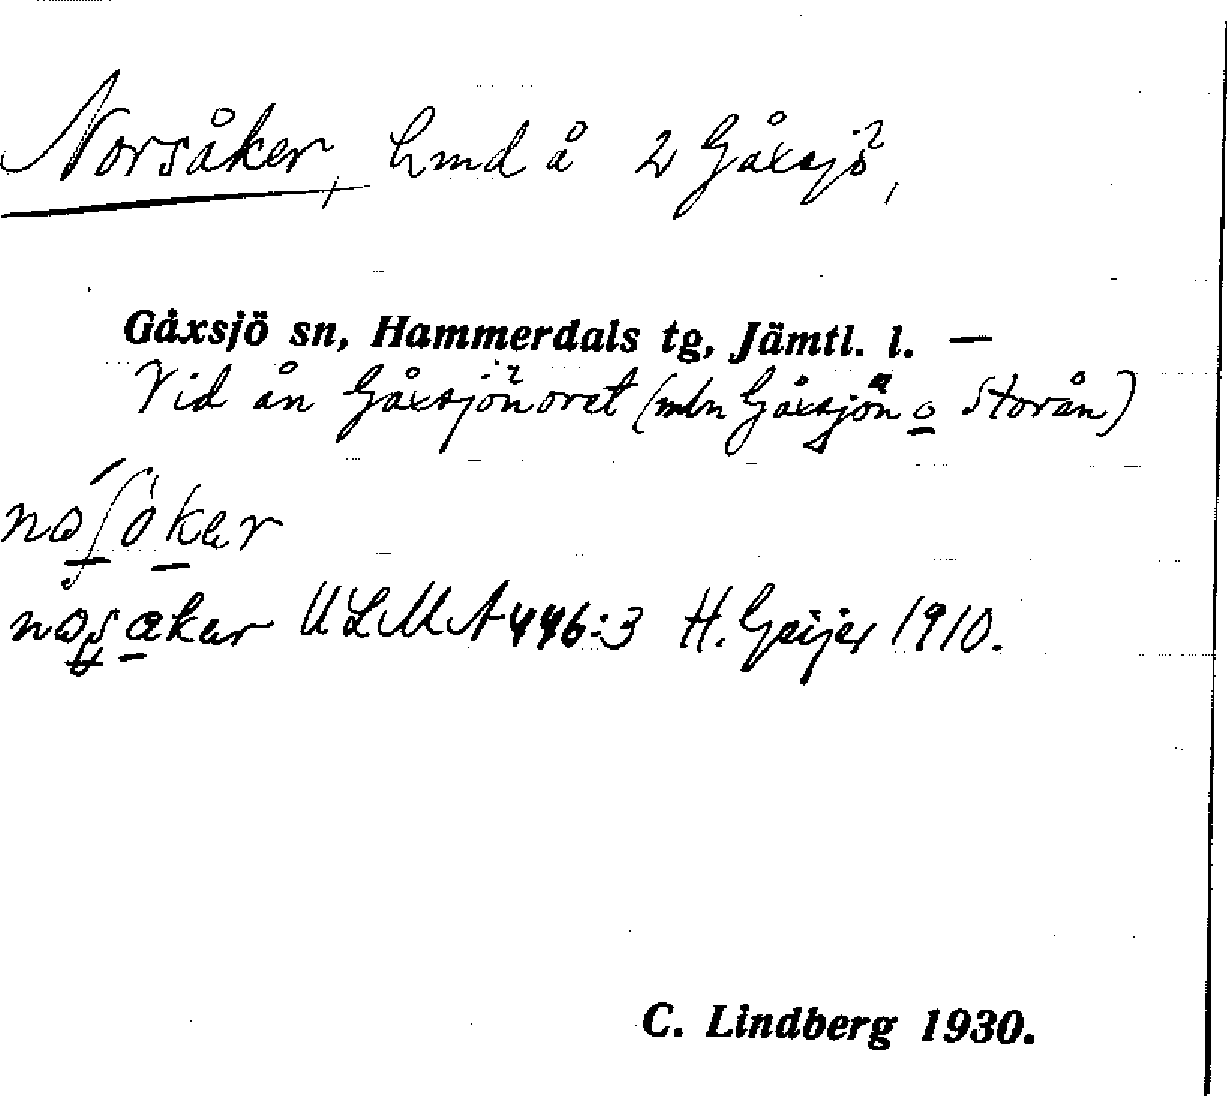 Norsåker, hmd å 2 Gåxsjö,
Gåxsjö sn, Hammerdals tg, Jämtl. l. —
Vid ån Gåxsjönoret (mln Gåxsjön o Storån)
ULMA 446:3 H. Geijer 1910.
C. Lindberg 1930.